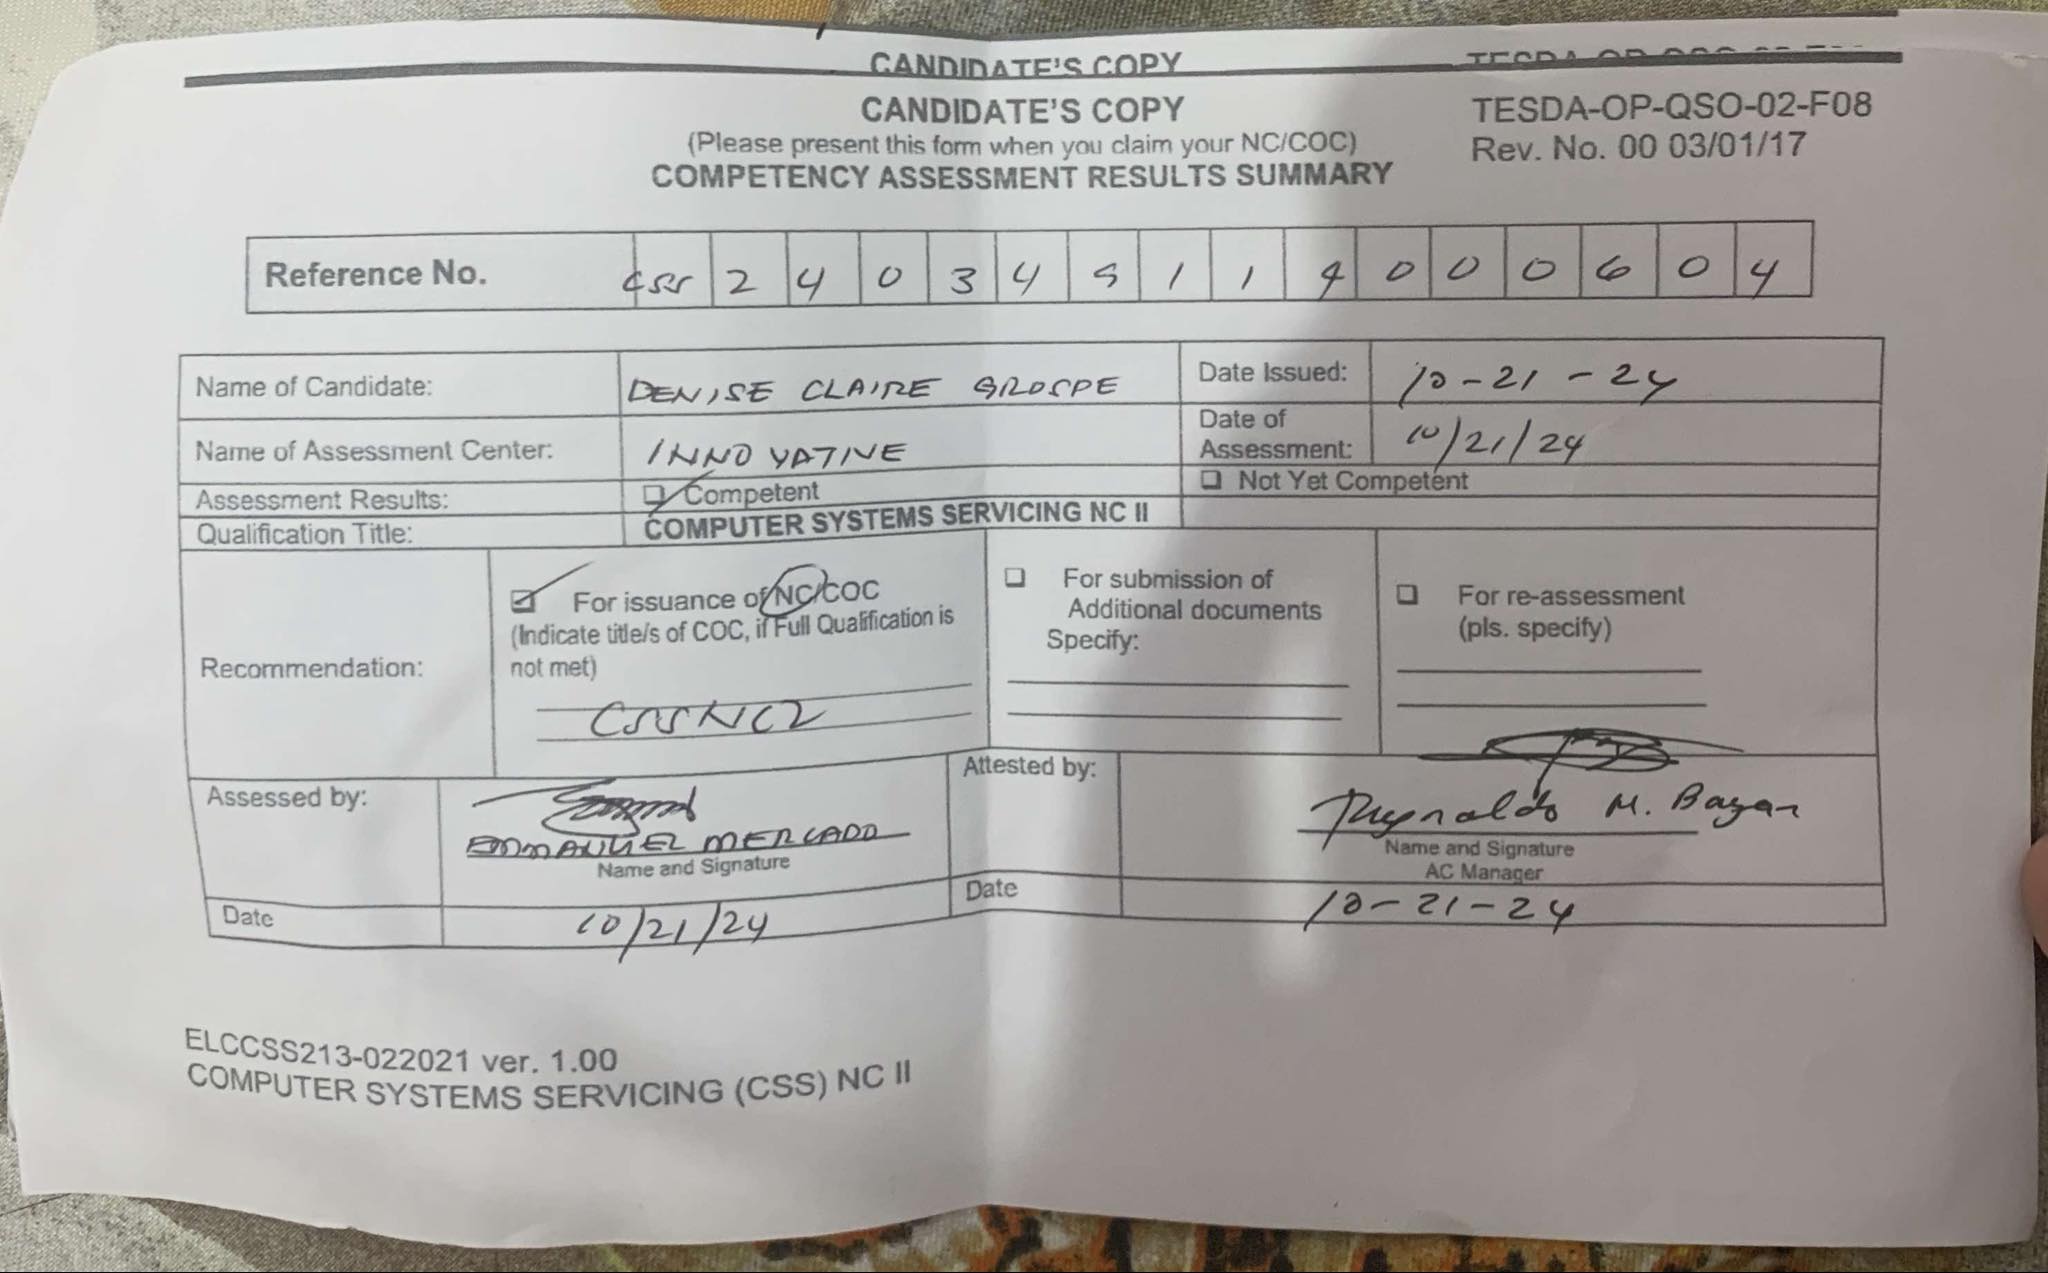 CANDIDATE'S COPY
CANDIDATE'S COPY
TESDA-OP-QSO-02-F08
(Please present this form when you claim your NC/COC)
Rev. No. 00 03/01/17
COMPETENCY ASSESSMENT RESULTS SUMMARY
Reference No. CSS 2 4 0 3 4 5 1 1 4 0 0 0 6 0 4
Name of Candidate: DENISE CLAIRE GROSPE Date Issued: 10-21-24
Name of Assessment Center: INNOVATIVE Date of Assessment: 10/21/24
Assessment Results: Competent Not Yet Competent
Qualification Title: COMPUTER SYSTEMS SERVICING NC II
Recommendation:
For issuance of NC/COC
(Indicate title/s of COC, if Full Qualification is
not met)
CSSNC2
For submission of
Additional documents
Specify:
For re-assessment
(pls. specify)
Assessed by:
EMMANUEL MERCADO
Name and Signature
Attested by:
Reynaldo M. Bayan
Name and Signature
AC Manager
Date 10/21/24
Date 10-21-24
ELCCSS213-022021 ver. 1.00
COMPUTER SYSTEMS SERVICING (CSS) NC II